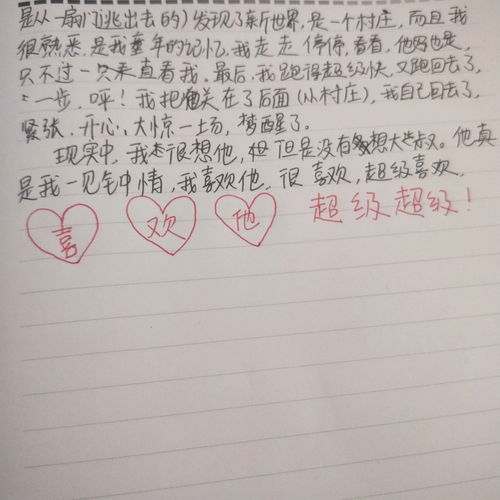 是从一扇门逃出去的)发现了新世界,是一个村庄,而且我
很熟悉,是我童年的记忆,我走走停停,看看,他也是,
只不过一只来直看我.最后,我跑得超级快,又跑回去了,
一步,呯!我把他关在了后面(从村庄),我自己回去了,
紧张,开心,大惊一场,梦醒了。
现实中,我很想他,但是没有多想大叔。他真
是我一见钟情,我喜欢他,很喜欢,超级喜欢.
喜 欢 他 超级超级!